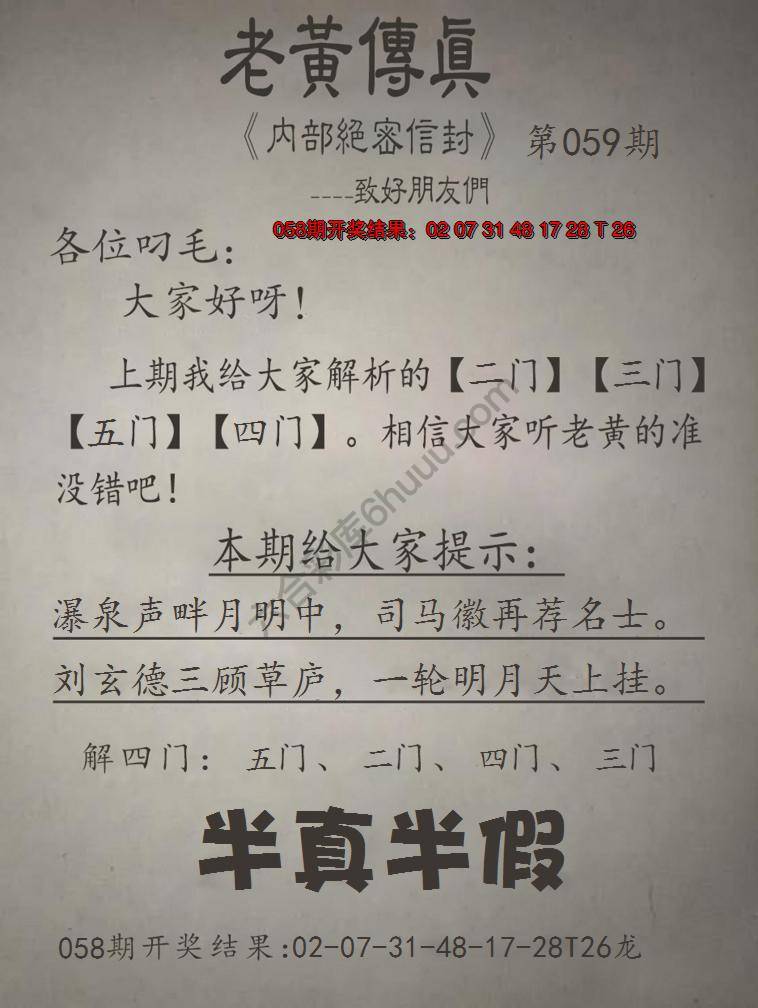 老黃傳眞
《内部絕密信封》 第059期
----致好朋友們
058期开奖结果：02 07 31 48 17 28 T 26
各位叼毛：
大家好呀！
上期我给大家解析的【二门】【三门】
【五门】【四门】。相信大家听老黄的准
没错吧！
本期给大家提示：
瀑泉声畔月明中，司马徽再荐名士。
刘玄德三顾草庐，一轮明月天上挂。
解四门：五门、二门、四门、三门
半真半假
058期开奖结果:02-07-31-48-17-28T26龙
六合彩库6huuu.com